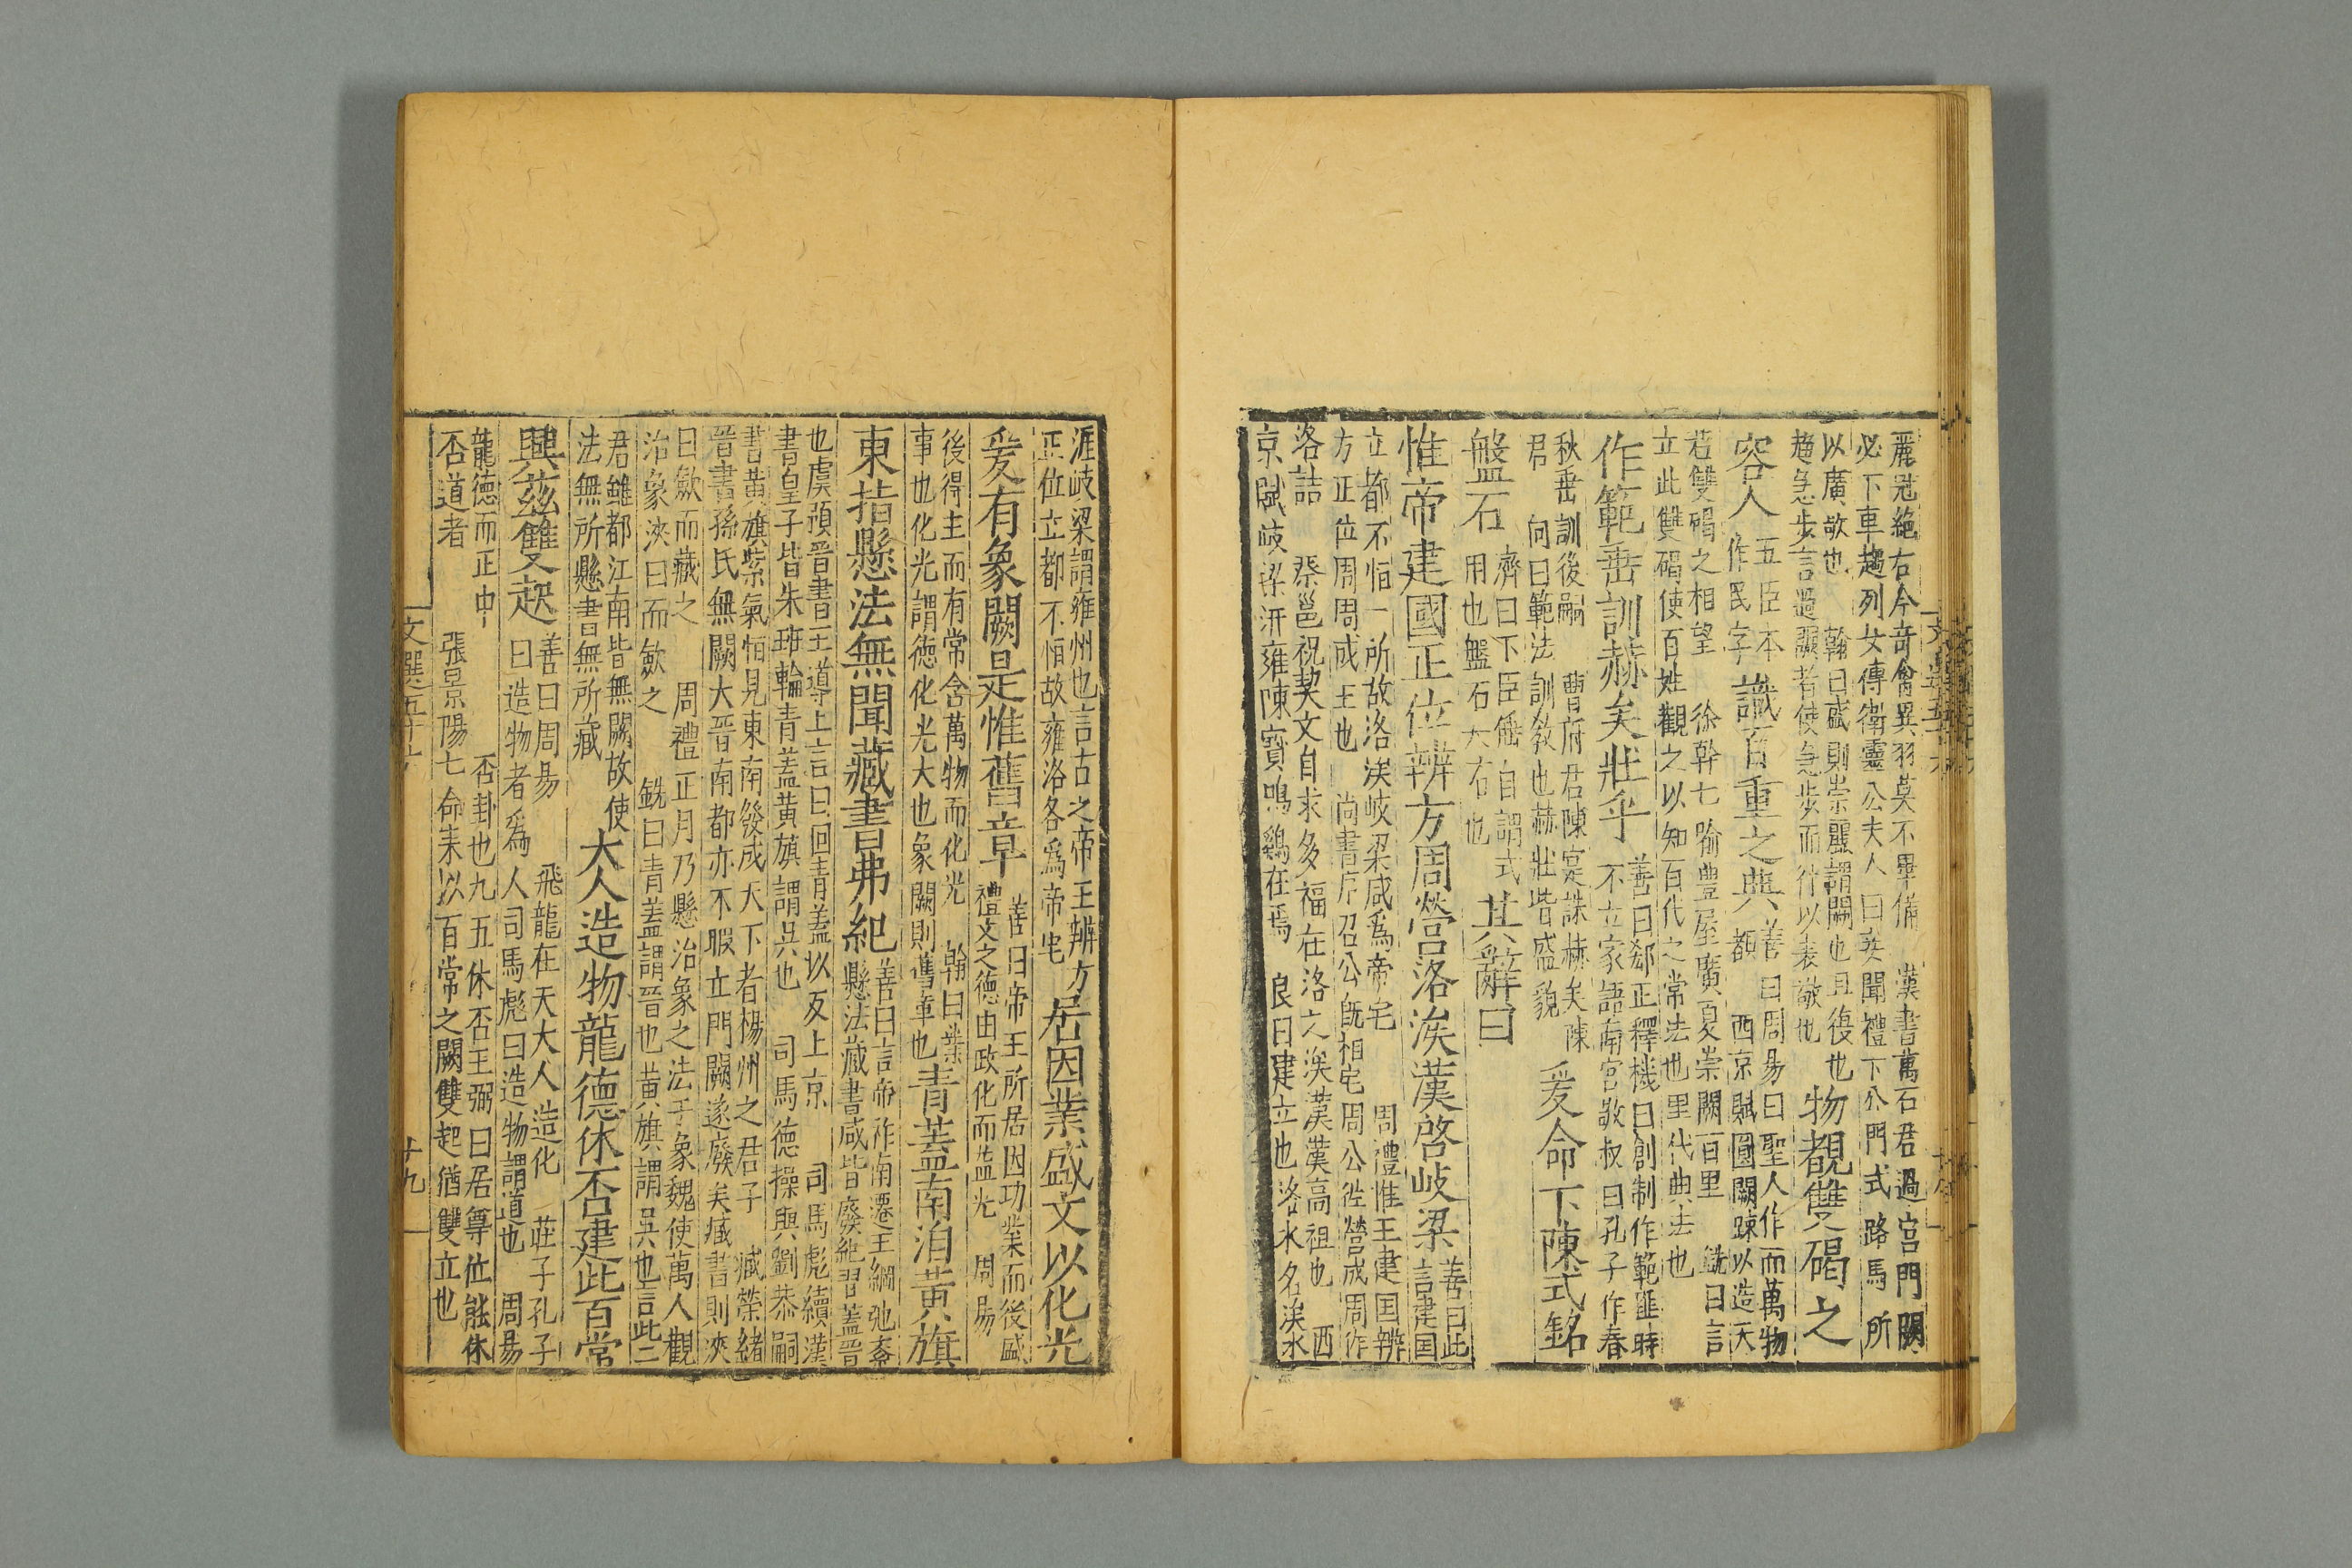 麗冠絕右今奇禽異羽莫不畢備 漢書萬石君過宮門闕
必下車趨列女傳衛靈公夫人曰妾聞禮下公門式路馬所
以廣敬也 翰曰盛則崇麗謂闕也且復也
趨急步言過闕者使急步而行以表敬也
物覩雙碣之
容人
五臣本
作民字
識百重之典
善曰周易曰聖人作而萬物
覩 西京賦圜闕竦以造天
若雙碣之相望 徐幹七喻豊屋廣夏崇闕百里 銑曰言
立此雙碣使百姓觀之以知百代之常法也里代典法也
作範垂訓赫矣壯乎
善曰郄正釋機曰創制作範匪時
不立家語南宮敬叔曰孔子作春
秋垂訓後嗣 曹府君陳寔誄赫矣陳
君 向曰範法訓教也赫壯皆盛貌
爰命下陳式銘
盤石
濟曰下臣倕自謂式
用也盤石大石也
其辭曰
惟帝建國正位辨方周營洛涘漢啓岐梁
善曰此
言建国
立都不恒一所故洛涘岐梁咸爲帝宅 周禮惟王建国辨
方正位周周成王也 尚書序召公旣相宅周公徃營成周作
洛誥 蔡邕祝契文自求多福在洛之涘漢漢高祖也 西
京賦岐梁汧雍陳寶鳴鷄在焉 良曰建立也洛水名涘水
涯岐梁謂雍州也言古之帝王辨方
正位立都不恒故雍洛各爲帝宅
居因業盛文以化光
爰有象闕是惟舊章
善曰帝王所居因功業而後盛
禮文之德由政化而益光 周易
後得主而有常含萬物而化光 翰曰業
事也化光謂德化光大也象闕則舊章也
青蓋南洎黃旗
東指懸法無聞藏書弗紀
善曰言帝祚南遷王綱弛紊
懸法藏書咸皆廢絶習蓋晉
也虞預晉書王導上言曰回青蓋以反上京 司馬彪續漢
書皇子皆朱斑輪青蓋黃旗謂吳也 司馬德操與劉恭嗣
書黃旗紫氣恒見東南發成天下者楊州之君子 臧榮緒
晉書孫氏無闕大晉南都亦不暇立門闕遂廢矣藏書則浹
日歛而藏之 周禮正月乃懸治象之法于象魏使萬人觀
治象浹日而歛之 銑曰青蓋謂晉也黃旗謂吳也言此二
君雖都江南皆無闕故使
法無所懸書無所藏
大人造物龍德休否建此百常
興茲雙起
善曰周易 飛龍在天大人造化 莊子孔子
曰造物者爲人司馬彪曰造物謂道也 周易
龍德而正中 否卦也九五休否王弼曰居尊位能休
否道者 張景陽七命耒以百常之闕雙起猶雙立也
文選五十六
十九